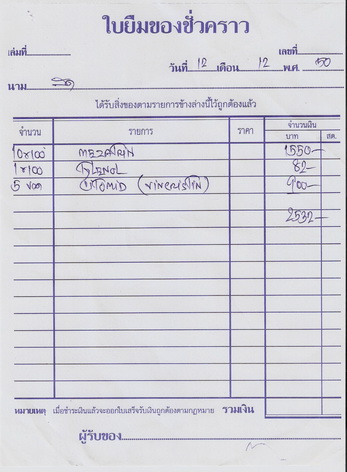 ใบยืมของชั่วคราว
เล่มที่ เลขที่
วันที่ 12 เดือน 12 พ.ศ. 50
นาม
ได้รับสิ่งของตามรายการข้างล่างนี้ไว้ถูกต้องแล้ว
จำนวน รายการ ราคา จำนวนเงิน
บาท สต.
10x100 1550-
1x100 TYLENOL 82-
5 ขวด CYTOMID (VINCRISTIN) 900-
2532-
หมายเหตุ เมื่อชำระเงินแล้วจะออกใบเสร็จรับเงินถูกต้องตามกฎหมาย รวมเงิน
ผู้รับของ